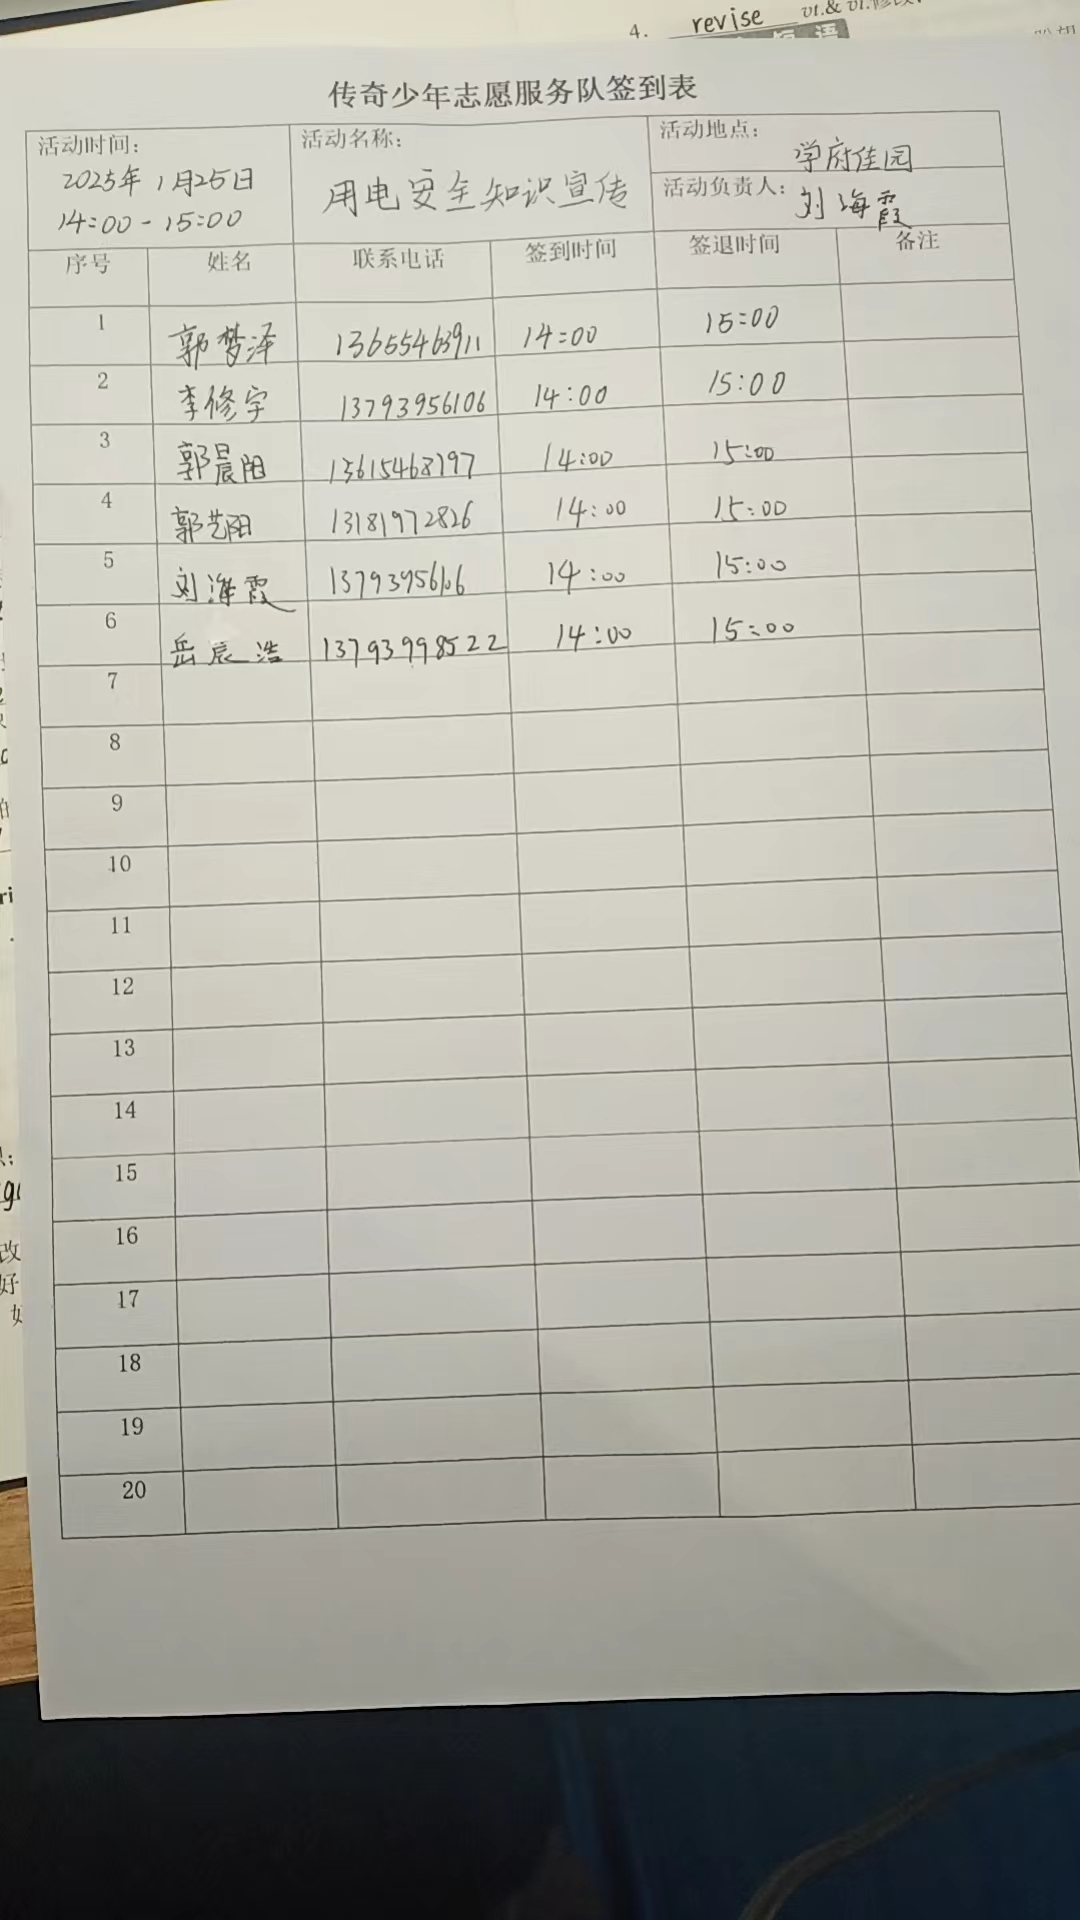 4. revise vt.& vi.修改
传奇少年志愿服务队签到表
活动时间: 活动名称: 活动地点:
2025年1月25日 用电安全知识宣传 学府佳园
14:00-15:00 活动负责人: 刘海霞
序号 姓名 联系电话 签到时间 签退时间 备注
1 郭梦泽 13655463911 14:00 15:00
2 李修宇 13793956106 14:00 15:00
3 郭晨阳 13615468797 14:00 15:00
4 郭艺阳 13181972826 14:00 15:00
5 刘海霞 13793956106 14:00 15:00
6 岳宸浩 13793998522 14:00 15:00
7
8
9
10
11
12
13
14
15
16
17
18
19
20
改
好